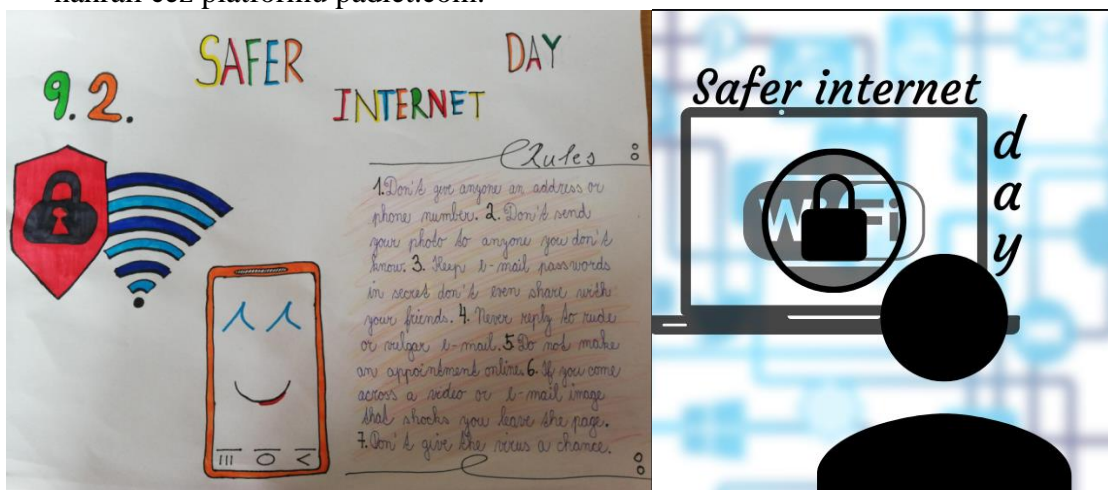 nahrali cez platformu padlet.com.
SAFER
DAY
9.2.
INTERNET
Rules
1. Don't give anyone an address or
phone number. 2. Don't send
your photo to anyone you don't
know. 3. Keep e-mail passwords
in secret don't even share with
your friends. 4. Never reply to rude
or vulgar e-mail. 5 Do not make
an appointment online. 6. If you come
across a video or e-mail image
that shocks you leave the page.
7. Don't give the virus a chance.
Safer internet
day
WiFi